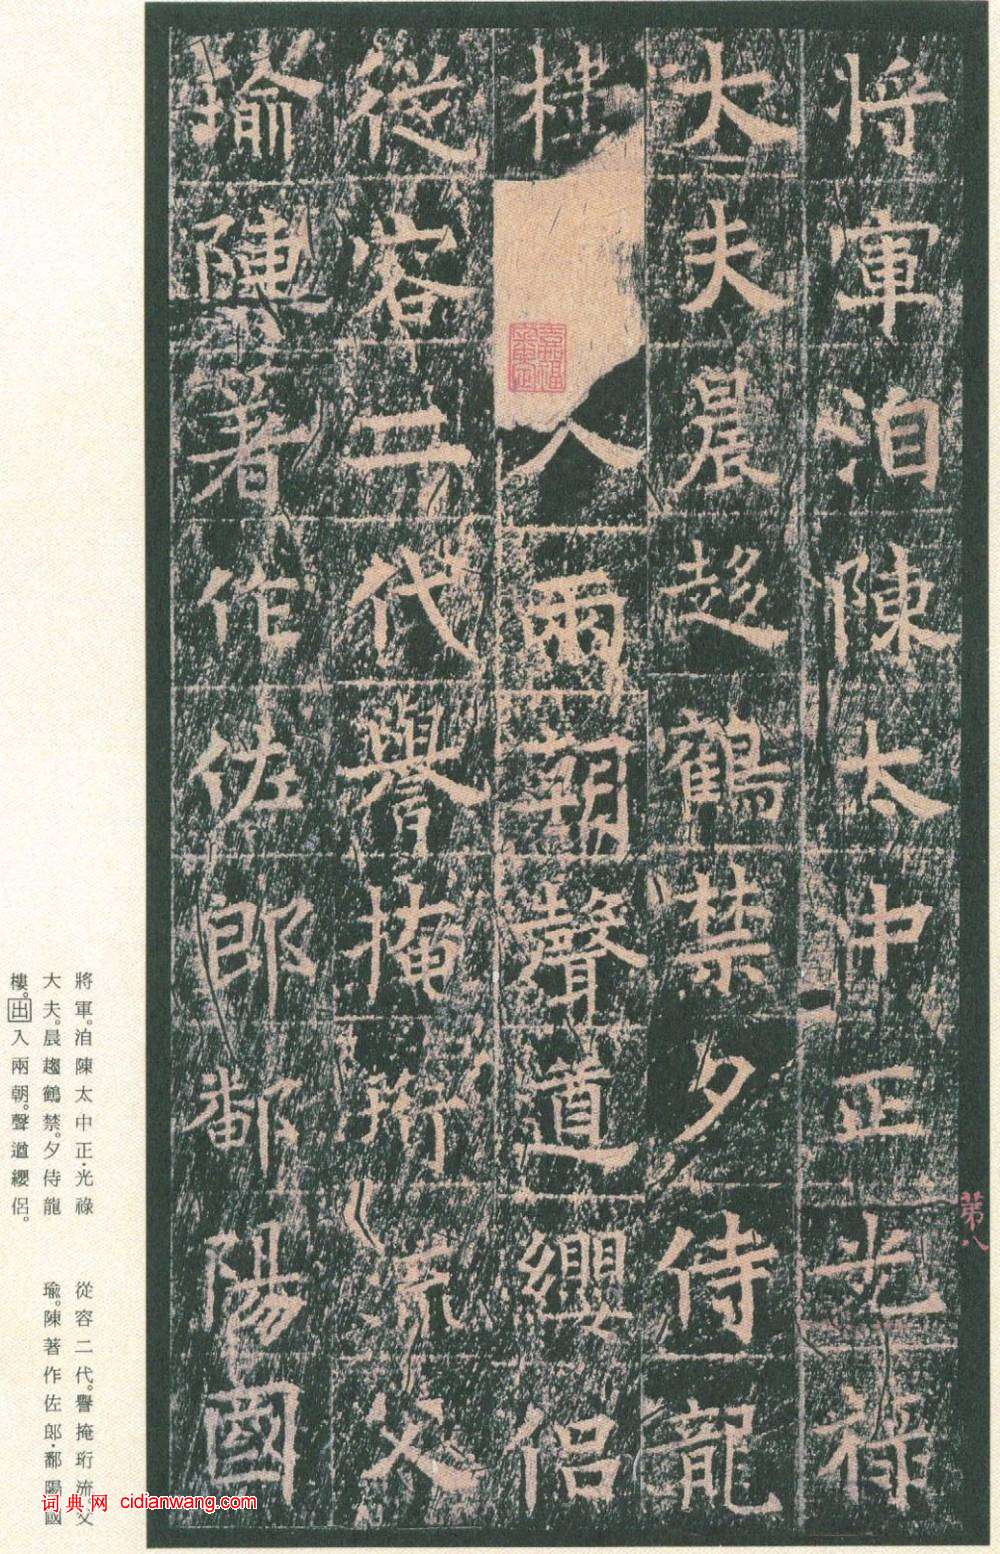 将軍洎陳太中正光祿
大夫晨趍鶴禁夕侍龍
樓入兩朝聲道纓侶
從容二代譽掩珩流父
瑜陳著作佐郎鄱陽國
第八
將軍。洎陳太中正·光祿
大夫。晨趨鶴禁。夕侍龍
樓。出入兩朝。聲道纓侶。
從容二代。譽掩珩流。父
瑜。陳著作佐郎·鄱陽國
词典网 cidianwang.com